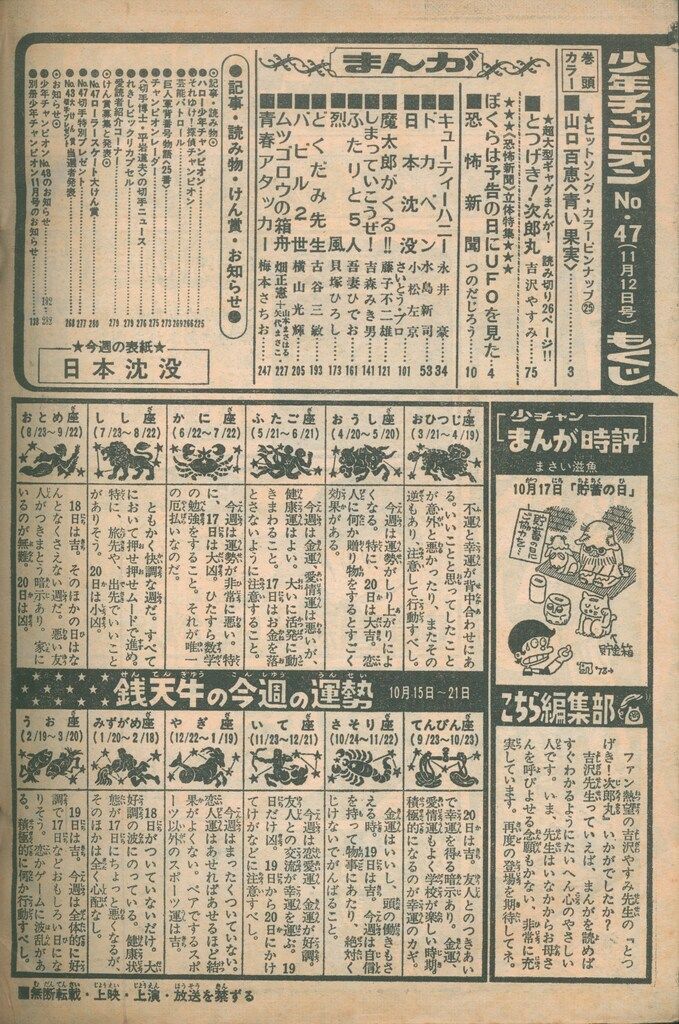 少年チャンピオン No・47(11月12日号) もくじ
巻頭カラー
★ヒットソング・カラーピンナップ㉕
■山口百恵〈青い果実〉 3
★超大型ギャグまんが! 読み切り26ページ!!
■とつげき!次郎丸 吉沢やすみ 75
★★★〈恐怖新聞〉立体特集★★★
ぼくらは予告の日にUFOを見た 4
■恐怖新聞 つのだじろう 10
まんが
■キューティーハニー 永井豪 34
■ドカベン 水島新司 53
■日本沈没 小松左京 さいとう・プロ 101
■魔太郎がくる!! 藤子不二雄 121
■しまっていこうぜ! 吉森みき男 141
■ふたりと5人 吾妻ひでお 161
■烈風 貝塚ひろし 173
■どくだみ先生 古谷三敏 193
■バビル2世 横山光輝 205
■ムツゴロウの箱舟 畑正憲 227
■青春アタッカー 梅本さちお 247
●記事・読み物・けん賞・お知らせ●
◎記事・読み物◎
●ハロー少年チャンピオン 225
●それゆけ!探偵チャンピオン
●芸能パトロール
●巨人軍背番号物語〈25番〉
●チャンピオンレーダー
●〈切手博士・平岩道夫〉の切手ニュース
●れきしビックリカプセル
●愛読者紹介コーナー
◎けん賞募集と発表◎
●No.47ローラースケート大けん賞 280
●No.47切手特別プレゼント 277
●No.43 当選者発表 268
◎お知らせ◎
●少年チャンピオンNo.48のお知らせ
●別冊少年チャンピオン11月号のお知らせ 138
★今週の表紙★
日本沈没
少チャン
まんが時評
まさい滋魚
10月17日「貯蓄の日」
貯蓄の日
ご協力を…
貯蓄箱
こちら編集部
ファン熱望の吉沢やすみ先生の『とつ
げき!次郎丸』いかがでしたか?
吉沢先生っていえば、まんがを読めば
すぐわかるようにたいへん心のやさしい
人です。いま、先生はいなかからお母さ
んを呼びよせる念願もかない、非常に充
実しています。再度の登場を期待してネ。
おひつじ座
(3/21〜4/19)
不運と幸運が背中合わせにあ
る。いいことと思ってしたこと
が意外と悪かったり、またその
逆もあり、注意して行動すべし。
おうし座
(4/20〜5/20)
今週は運勢がしり上がりによ
くなる。特に、20日は大吉。恋
人に何か贈り物をするとすごく
効果がある。
ふたご座
(5/21〜6/21)
今週は金運、愛情運は悪いが、
健康運はよい。大いに活発に動
きまわること。17日はお金を落
とさないように注意すること。
かに座
(6/22〜7/22)
今週は運勢が非常に悪い。特
に、17日は大凶。ひたすら数学
の勉強をすること。それが唯一
の厄払いなのだ。
しし座
(7/23〜8/22)
ともかく快調な週だ。すべて
において押せ押せムードで進め。
特に、旅先や、出先でいいこと
がありそう。20日は小凶。
おとめ座
(8/23〜9/22)
18日は吉。そのほかの日はな
んとなくさえない週だ。悪い友
人がつきまとう暗示あり。家に
いるのが無難。20日は凶。
銭天牛の今週の運勢 10月15日〜21日
てんびん座
(9/23〜10/23)
20日は吉。友人とのつきあい
で幸運を得る暗示あり。金運、
愛情運もよく学校が楽しい時期。
積極的になるのが幸運のカギ。
さそり座
(10/24〜11/22)
金運はいいし、頭の働きもさ
える時。19日は吉。今週は自信
を持って物事にあたり、絶対く
じけないでがんばること。
いて座
(11/23〜12/21)
今週は恋愛運、金運が好調。
友人との交流が幸運を運ぶ。19
日だけ凶。19日から20日にかけ
てけがなどに注意すべし。
やぎ座
(12/22〜1/19)
今週はまったくついていない。
恋人運はあせればあせるほど結
果がよくない。ペアでするスポ
ーツ以外のスポーツ運は吉。
みずがめ座
(1/20〜2/18)
18日がついていないだけ。大
好調の波にのっている。健康状
態が17日にちょっと悪くなるが、
そのほかは全く心配なし。
うお座
(2/19〜3/20)
19日は吉。今週は全体的に好
調で17日などおもしろい日にな
りそう。恋かゲームに波乱があ
る。積極的に何か行動すべし。
■無断転載・上映・上演・放送を禁ずる